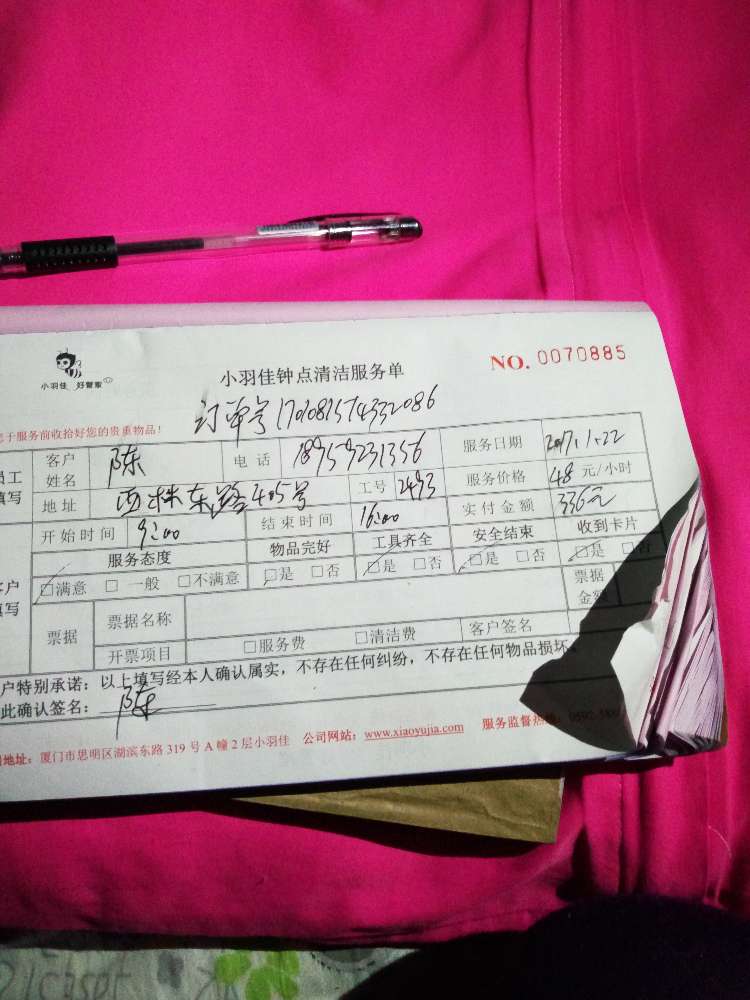 小羽佳 好管家
小羽佳钟点清洁服务单
NO. 0070885
子服务前收拾好您的贵重物品!
订单号
员工
填写
客户
姓名
陈
电话
18959231356
服务日期
2017.1.22
地址
东路405号
工号
2493
服务价格
48 元/小时
开始时间
9:00
结束时间
16:00
实付金额
336元
服务态度
物品完好
工具齐全
安全结束
收到卡片
客户
填写
□满意 □ 一般 □不满意
□是 □否
□是 □否
□是 □否
□是 否
票据
票据名称
票据
金额
开票项目
□服务费 □清洁费
客户签名
户特别承诺:以上填写经本人确认属实,不存在任何纠纷,不存在任何物品损坏。
此确认签名:
陈
地址:厦门市思明区湖滨东路 319 号 A 幢 2 层小羽佳 公司网站:www.xiaoyujia.com 服务监督热线:0592-